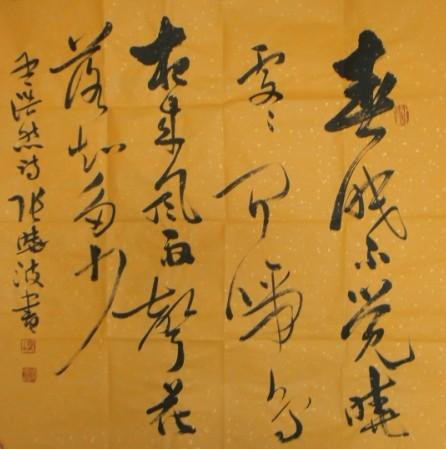 春眠不觉晓
處々闻啼鸟
夜来风雨聲花
落知多少
孟浩然诗 张波書